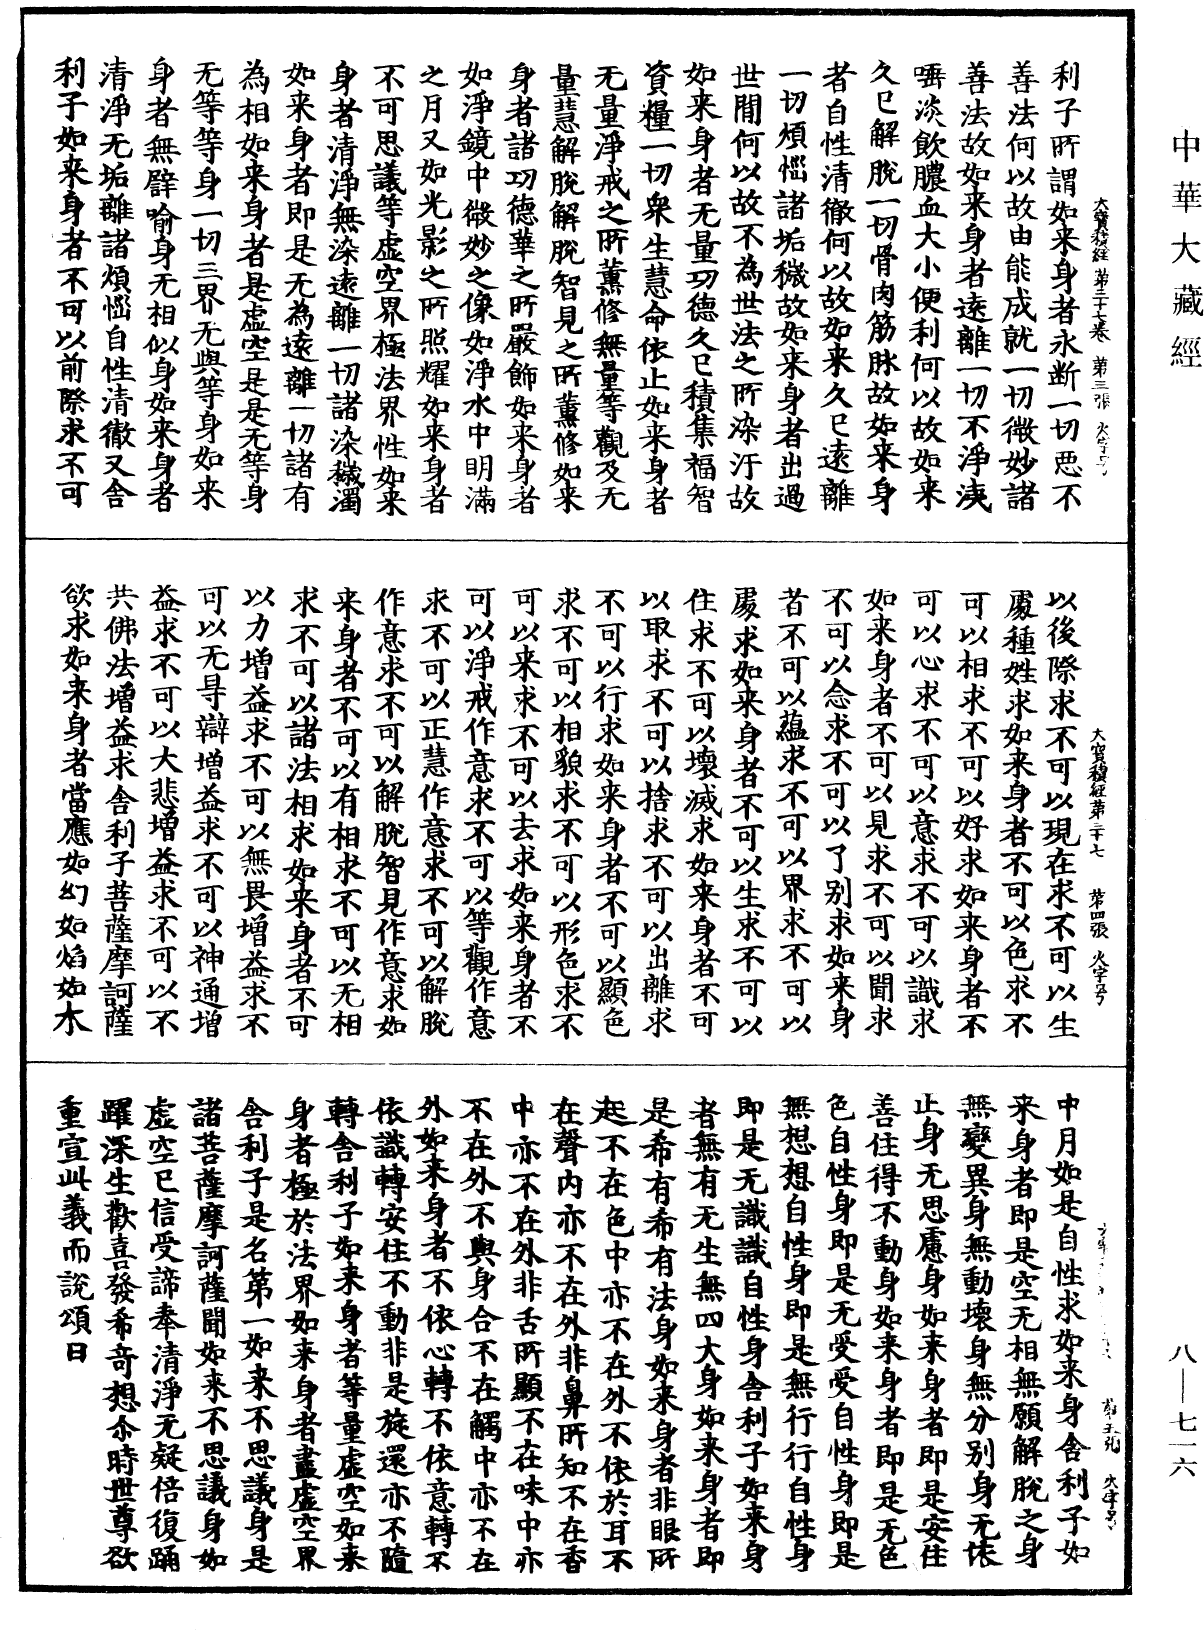 中華大藏經
大寶積經 第三十七卷 第三張 火字号
利子所謂如来身者永断一切惡不
善法何以故由能成就一切微妙諸
善法故如来身者遠離一切不淨洟
唾淡飲膿血大小便利何以故如来
久已解脫一切骨肉筋脉故如来身
者自性清徹何以故如来久已遠離
一切煩惱諸垢穢故如来身者出過
世間何以故不為世法之所染汙故
如来身者无量功德久已積集福智
資糧一切衆生慧命依止如来身者
无量淨戒之所薰修無量等觀及无
量慧解脫解脫智見之所薰修如来
身者諸功德華之所嚴飾如来身者
如淨鏡中微妙之像如淨水中明滿
之月又如光影之所照耀如来身者
不可思議等虛空界極法界性如来
身者清淨無染遠離一切諸染穢濁
如来身者即是无為遠離一切諸有
為相如来身者是虛空是是无等身
无等等身一切三界无與等身如来
身者無譬喻身无相似身如来身者
清淨无垢離諸煩惱自性清徹又舍
利子如来身者不可以前際求不可
大寶積經第三十七 第四張 火字号
以後際求不可以現在求不可以生
處種姓求如来身者不可以色求不
可以相求不可以好求如来身者不
可以心求不可以意求不可以識求
如来身者不可以見求不可以聞求
不可以念求不可以了别求如来身
者不可以蘊求不可以界求不可以
處求如来身者不可以生求不可以
住求不可以壞滅求如来身者不可
以取求不可以捨求不可以出離求
不可以行求如来身者不可以顯色
求不可以相貌求不可以形色求不
可以来求不可以去求如来身者不
可以淨戒作意求不可以等觀作意
求不可以正慧作意求不可以解脫
作意求不可以解脫智見作意求如
来身者不可以有相求不可以无相
求不可以諸法相求如来身者不可
以力增益求不可以無畏增益求不
可以无㝵辯增益求不可以神通增
益求不可以大悲增益求不可以不
共佛法增益求舍利子菩薩摩訶薩
欲求如来身者當應如幻如焰如水
第五張 火字号
中月如是自性求如来身舍利子如
来身者即是空无相無願解脫之身
無變異身無動壞身無分别身无依
止身无思慮身如来身者即是安住
善住得不動身如来身者即是无色
色自性身即是无受受自性身即是
無想想自性身即是無行行自性身
即是无識識自性身舍利子如来身
者無有无生無四大身如来身者即
是希有希有法身如来身者非眼所
起不在色中亦不在外不依於耳不
在聲内亦不在外非鼻所知不在香
中亦不在外非舌所顯不在味中亦
不在外不與身合不在觸中亦不在
外如来身者不依心轉不依意轉不
依識轉安住不動非是旋還亦不隨
轉舍利子如来身者等量虛空如来
身者極於法界如来身者盡虛空界
舍利子是名第一如来不思議身是
諸菩薩摩訶薩聞如来不思議身如
虛空已信受諦奉清淨无疑倍復踊
躍深生歡喜發希奇想尒時世尊欲
重宣此義而說頌曰
八—七一六